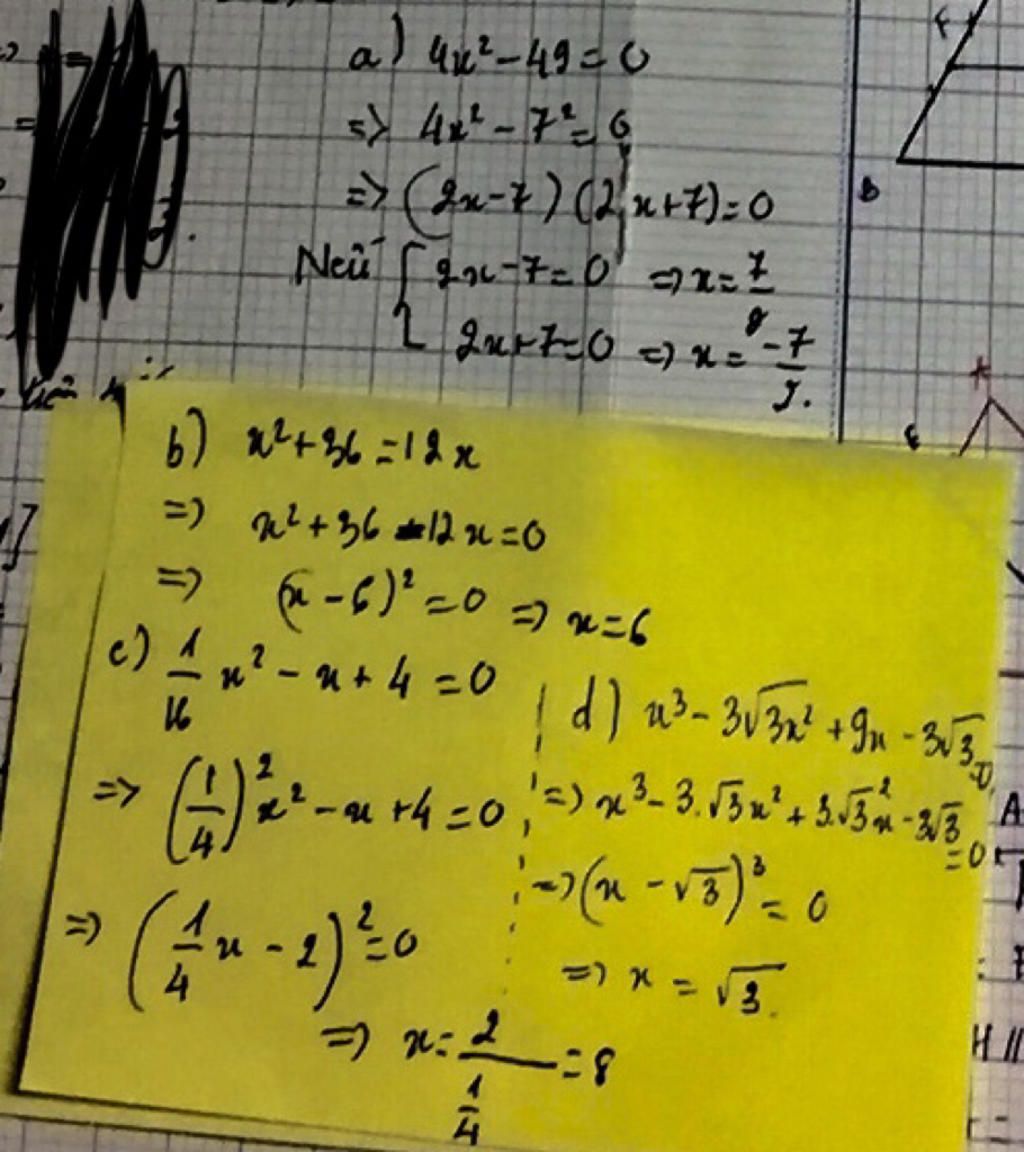 a) 4x² - 49 = 0
=> 4x² - 7² = 0
=> (2x - 7)(2x + 7) = 0
Nếu [ 2x - 7 = 0 => x = 7/2
2x + 7 = 0 => x = -7/2.
b) x² + 36 = 12x
=> x² + 36 - 12x = 0
=> (x - 6)² = 0 => x = 6
c) 1/16 x² - x + 4 = 0
=> (1/4)² x² - x + 4 = 0
=> (1/4 x - 2)² = 0
=> x = 2/(1/4) = 8
d) x³ - 3√3x² + 9x - 3√3 = 0
=> x³ - 3.√3x² + 3.√3²x - 3√3 = 0
=> (x - √3)³ = 0
=> x = √3.
F
B
A
E
A
H //